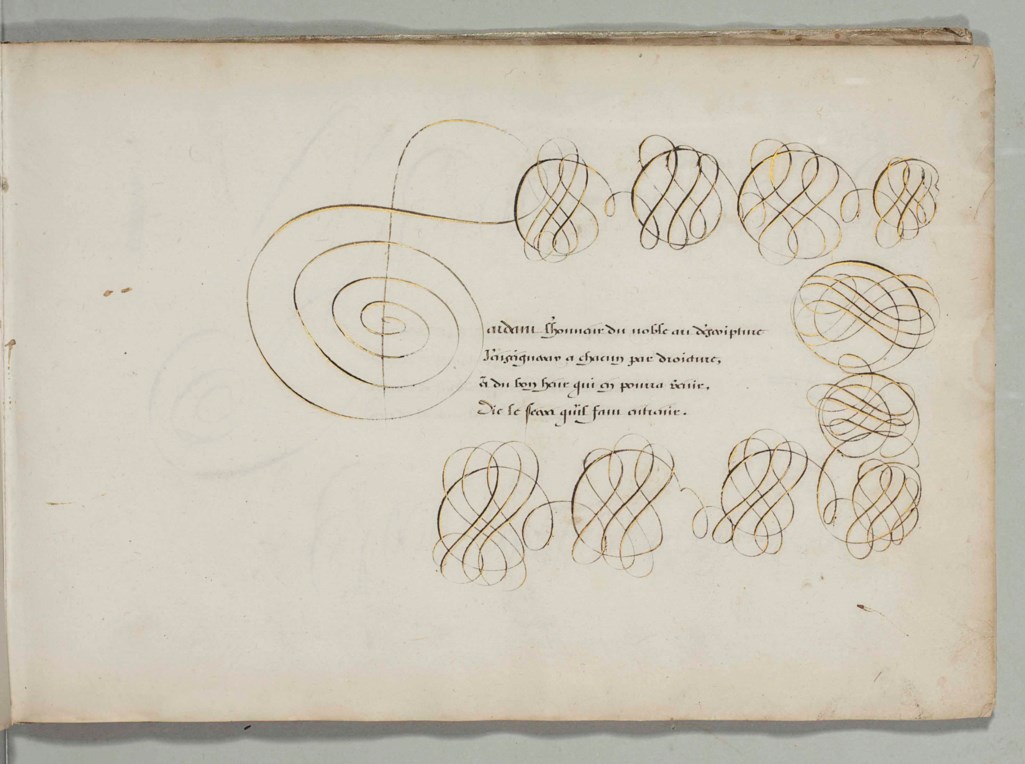 Gardant l'honneur du noble art d'escripture
J'enseigneray a chacun par droicture,
Et du bon heur qui en pourra venir,
Dic le secret qu'il faut